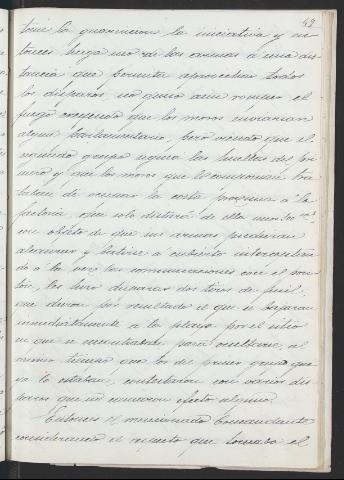 49
tomó la guarnicion la iniciativa y en-
tonces haya uno de los cañones a una dis-
tancia que permita aprovechar todos
los disparos, no quiso aun romper el
fuego creyendo que los moros enviarian
algun parlamentario, pero viendo que el
segundo grupo seguia las huellas del pri-
mero y que los moros que le componian tra-
taban de ocupar la costa proxima á la
factoria, que solo distará de ella unos
con objeto de que sus armas pudieran
alcanzar y batirse á cubierto interceptan-
do a la vez las comunicaciones con el pon-
ton, les hizo disparar dos tiros de fusil
que dieron por resultado el que se bajaran
inmediatamente a la playa por el sitio
en que se encontraban para ocultarse, al
mismo tiempo que los del primer grupo que
ya lo estaban, contestaron con varios dis-
paros que no causaron efecto alguno.
Entonces el mencionado Comandante
considerando el respeto que tomaba el